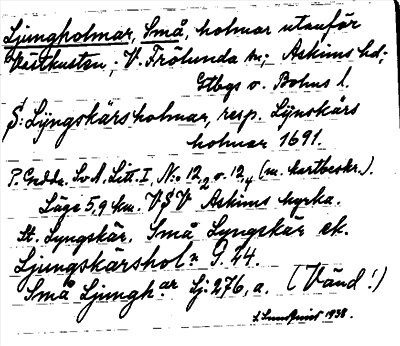 Ljungholmar, Små, holmar utanför
Västkusten; V. Frölunda sn; Askims hd;
Gtbgs o. Bohus l.
S: Lyngskärsholmar, resp. Lÿnskärs
holmar 1691.
P. Gedda. Sv. A. Litt. I, No 12,2 o. 12,4 (m. kartbeskr.).
Läge 5,9 km. VSV Askims kyrka.
St. Lyngskär, Små Lyngskär ek.
Ljungskärshol:r G. 44.
Små Ljungh:ar Lj: 276, a. (Vänd!)
1938.